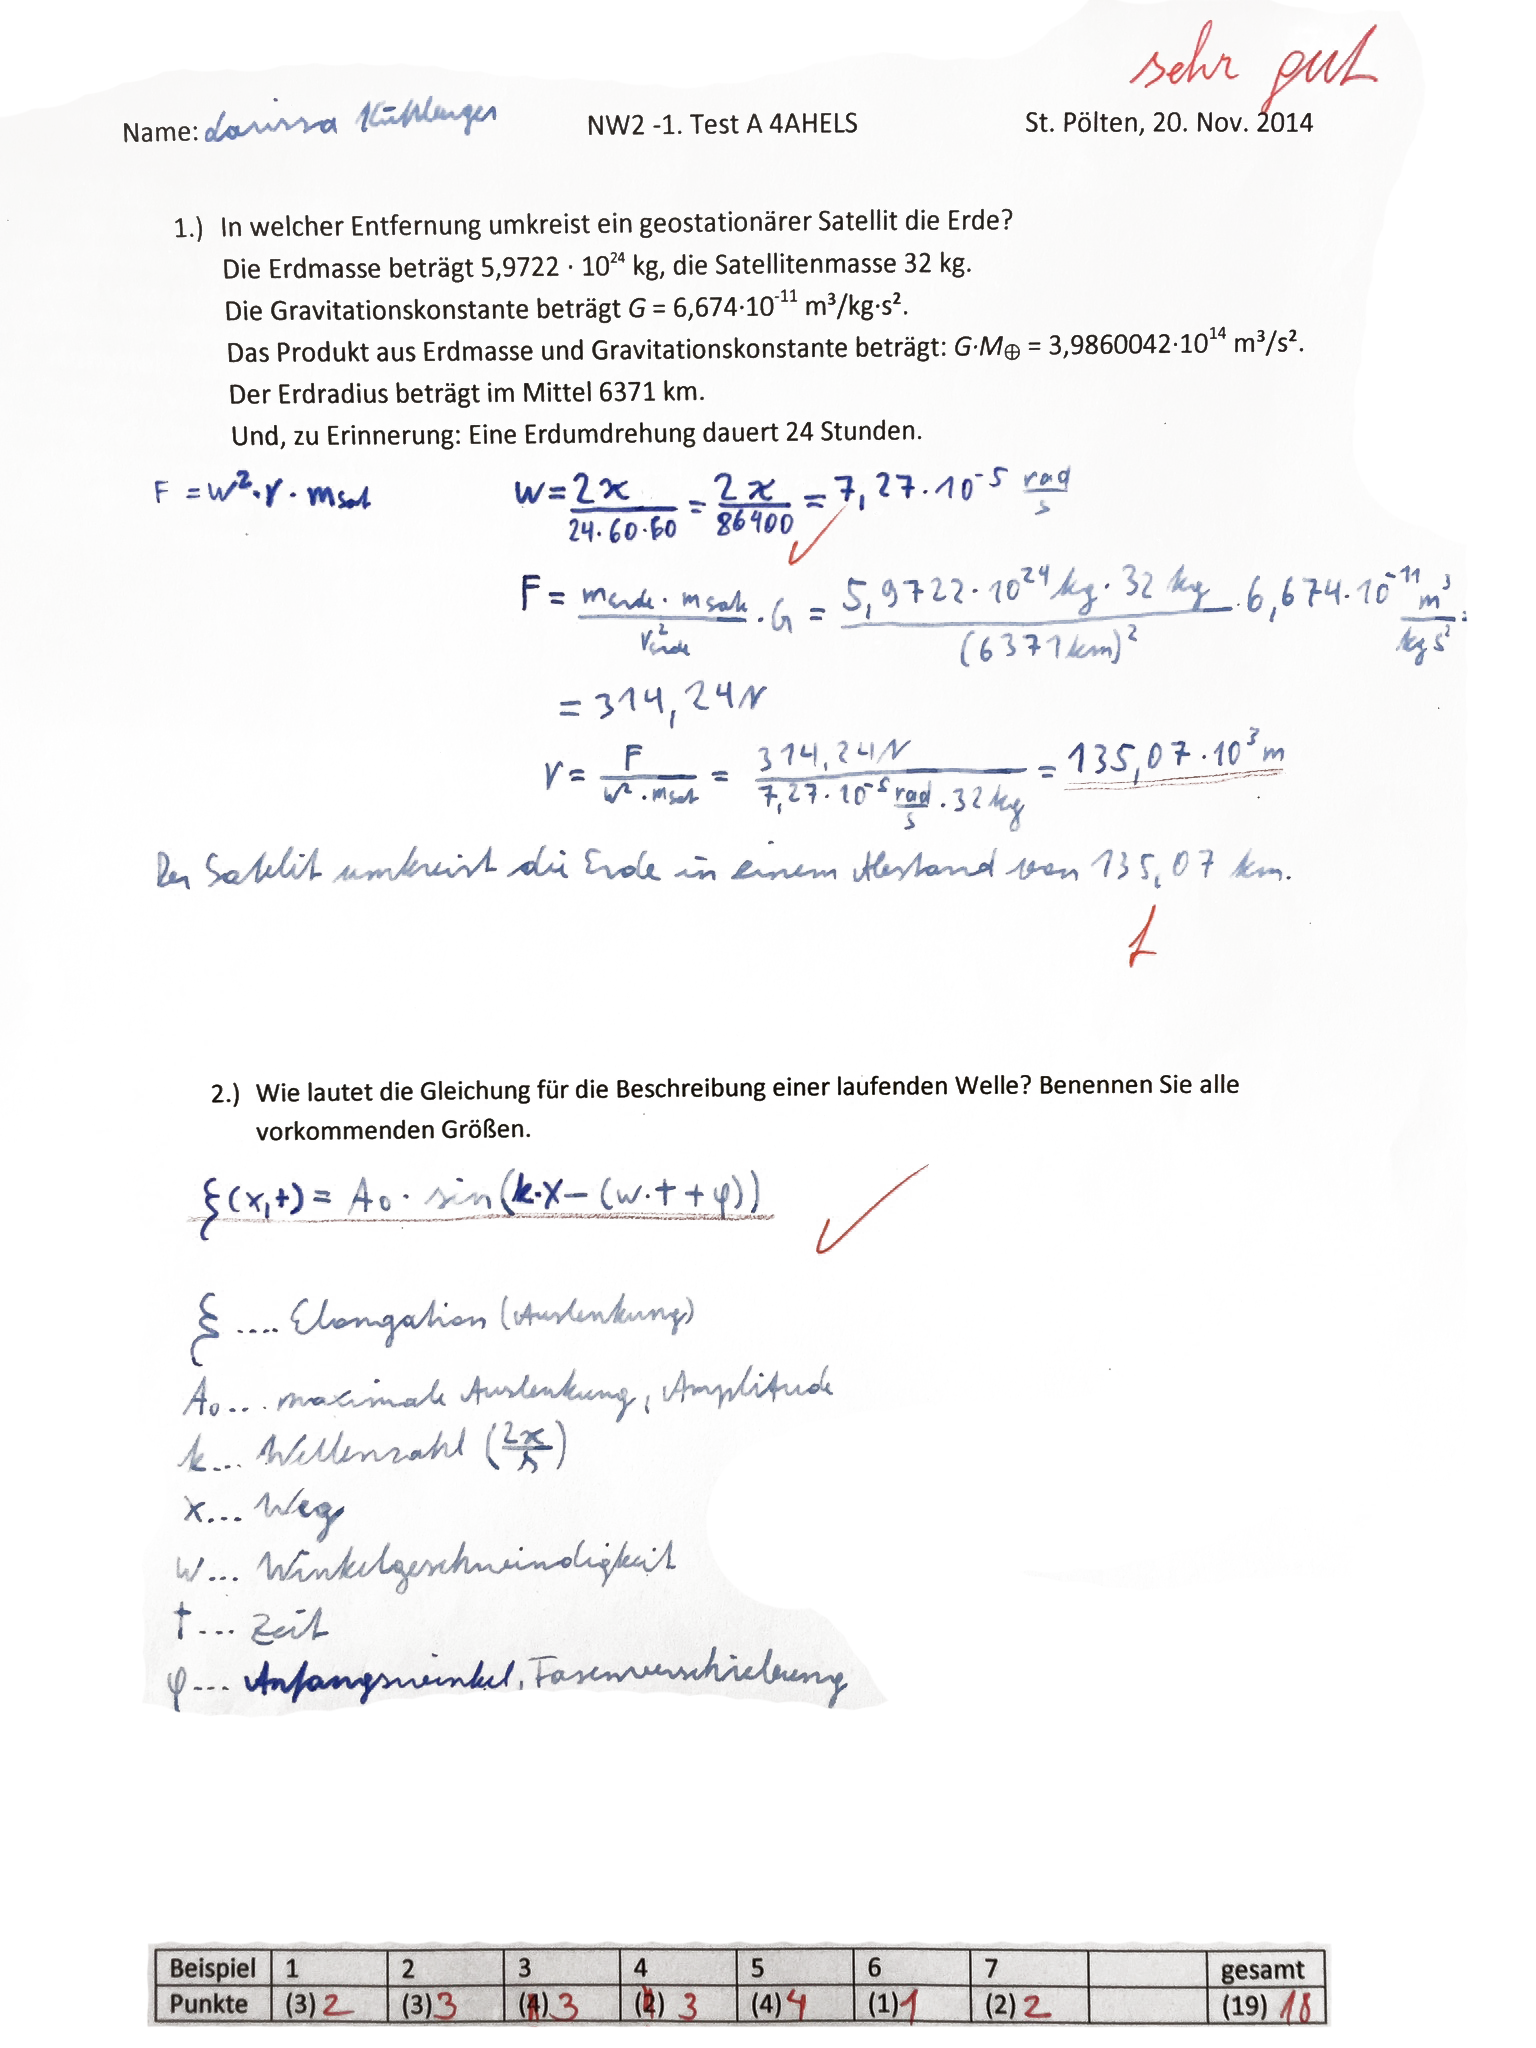 sehr gut
Name: Larissa NW2 -1. Test A 4AHELS St. Pölten, 20. Nov. 2014
1.) In welcher Entfernung umkreist ein geostationärer Satellit die Erde?
Die Erdmasse beträgt 5,9722 · 10²⁴ kg, die Satellitenmasse 32 kg.
Die Gravitationskonstante beträgt G = 6,674·10⁻¹¹ m³/kg·s².
Das Produkt aus Erdmasse und Gravitationskonstante beträgt: G·M⊕ = 3,9860042·10¹⁴ m³/s².
Der Erdradius beträgt im Mittel 6371 km.
Und, zu Erinnerung: Eine Erdumdrehung dauert 24 Stunden.
F = w²·r·msat w = 2π/(24·60·60) = 2π/86400 = 7,27·10⁻⁵ rad/s
F = (merde · msat)/r²erde · G = (5,9722·10²⁴ kg · 32 kg)/(6371km)² · 6,674·10⁻¹¹ m³/kg s² =
= 314,24N
r = F/(w²·msat) = 314,24N/(7,27·10⁻⁵ rad/s · 32 kg) = 135,07·10³ m
Der Satelit umkreist die Erde in einem Abstand von 135,07 km.
f
2.) Wie lautet die Gleichung für die Beschreibung einer laufenden Welle? Benennen Sie alle
vorkommenden Größen.
ξ(x,t) = A₀ · sin(k·x − (w·t + φ))
ξ .... Elongation (Auslenkung)
A₀ ... maximale Auslenkung, Amplitude
k... Wellenzahl (2π/λ)
x... Weg
w... Winkelgeschwindigkeit
t... Zeit
φ... Anfangswinkel, Fasenverschiebung
Beispiel 1 2 3 4 5 6 7 gesamt
Punkte (3) 2 (3) 3 (4) 3 (2) 3 (4) 4 (1) 1 (2) 2 (19) 18